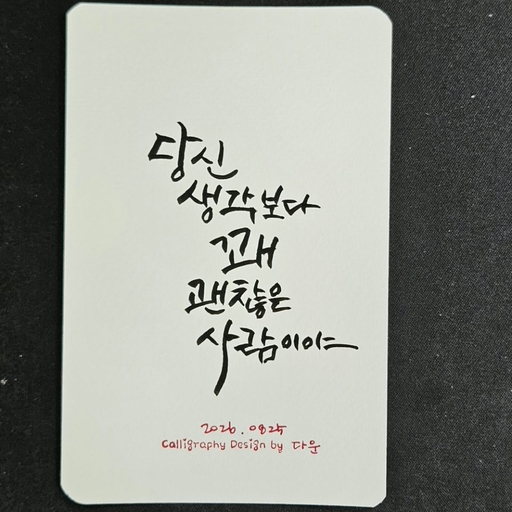 당신
생각보다
꽤
괜찮은
사람이야
2026. 0825
Calligraphy Design by 다운